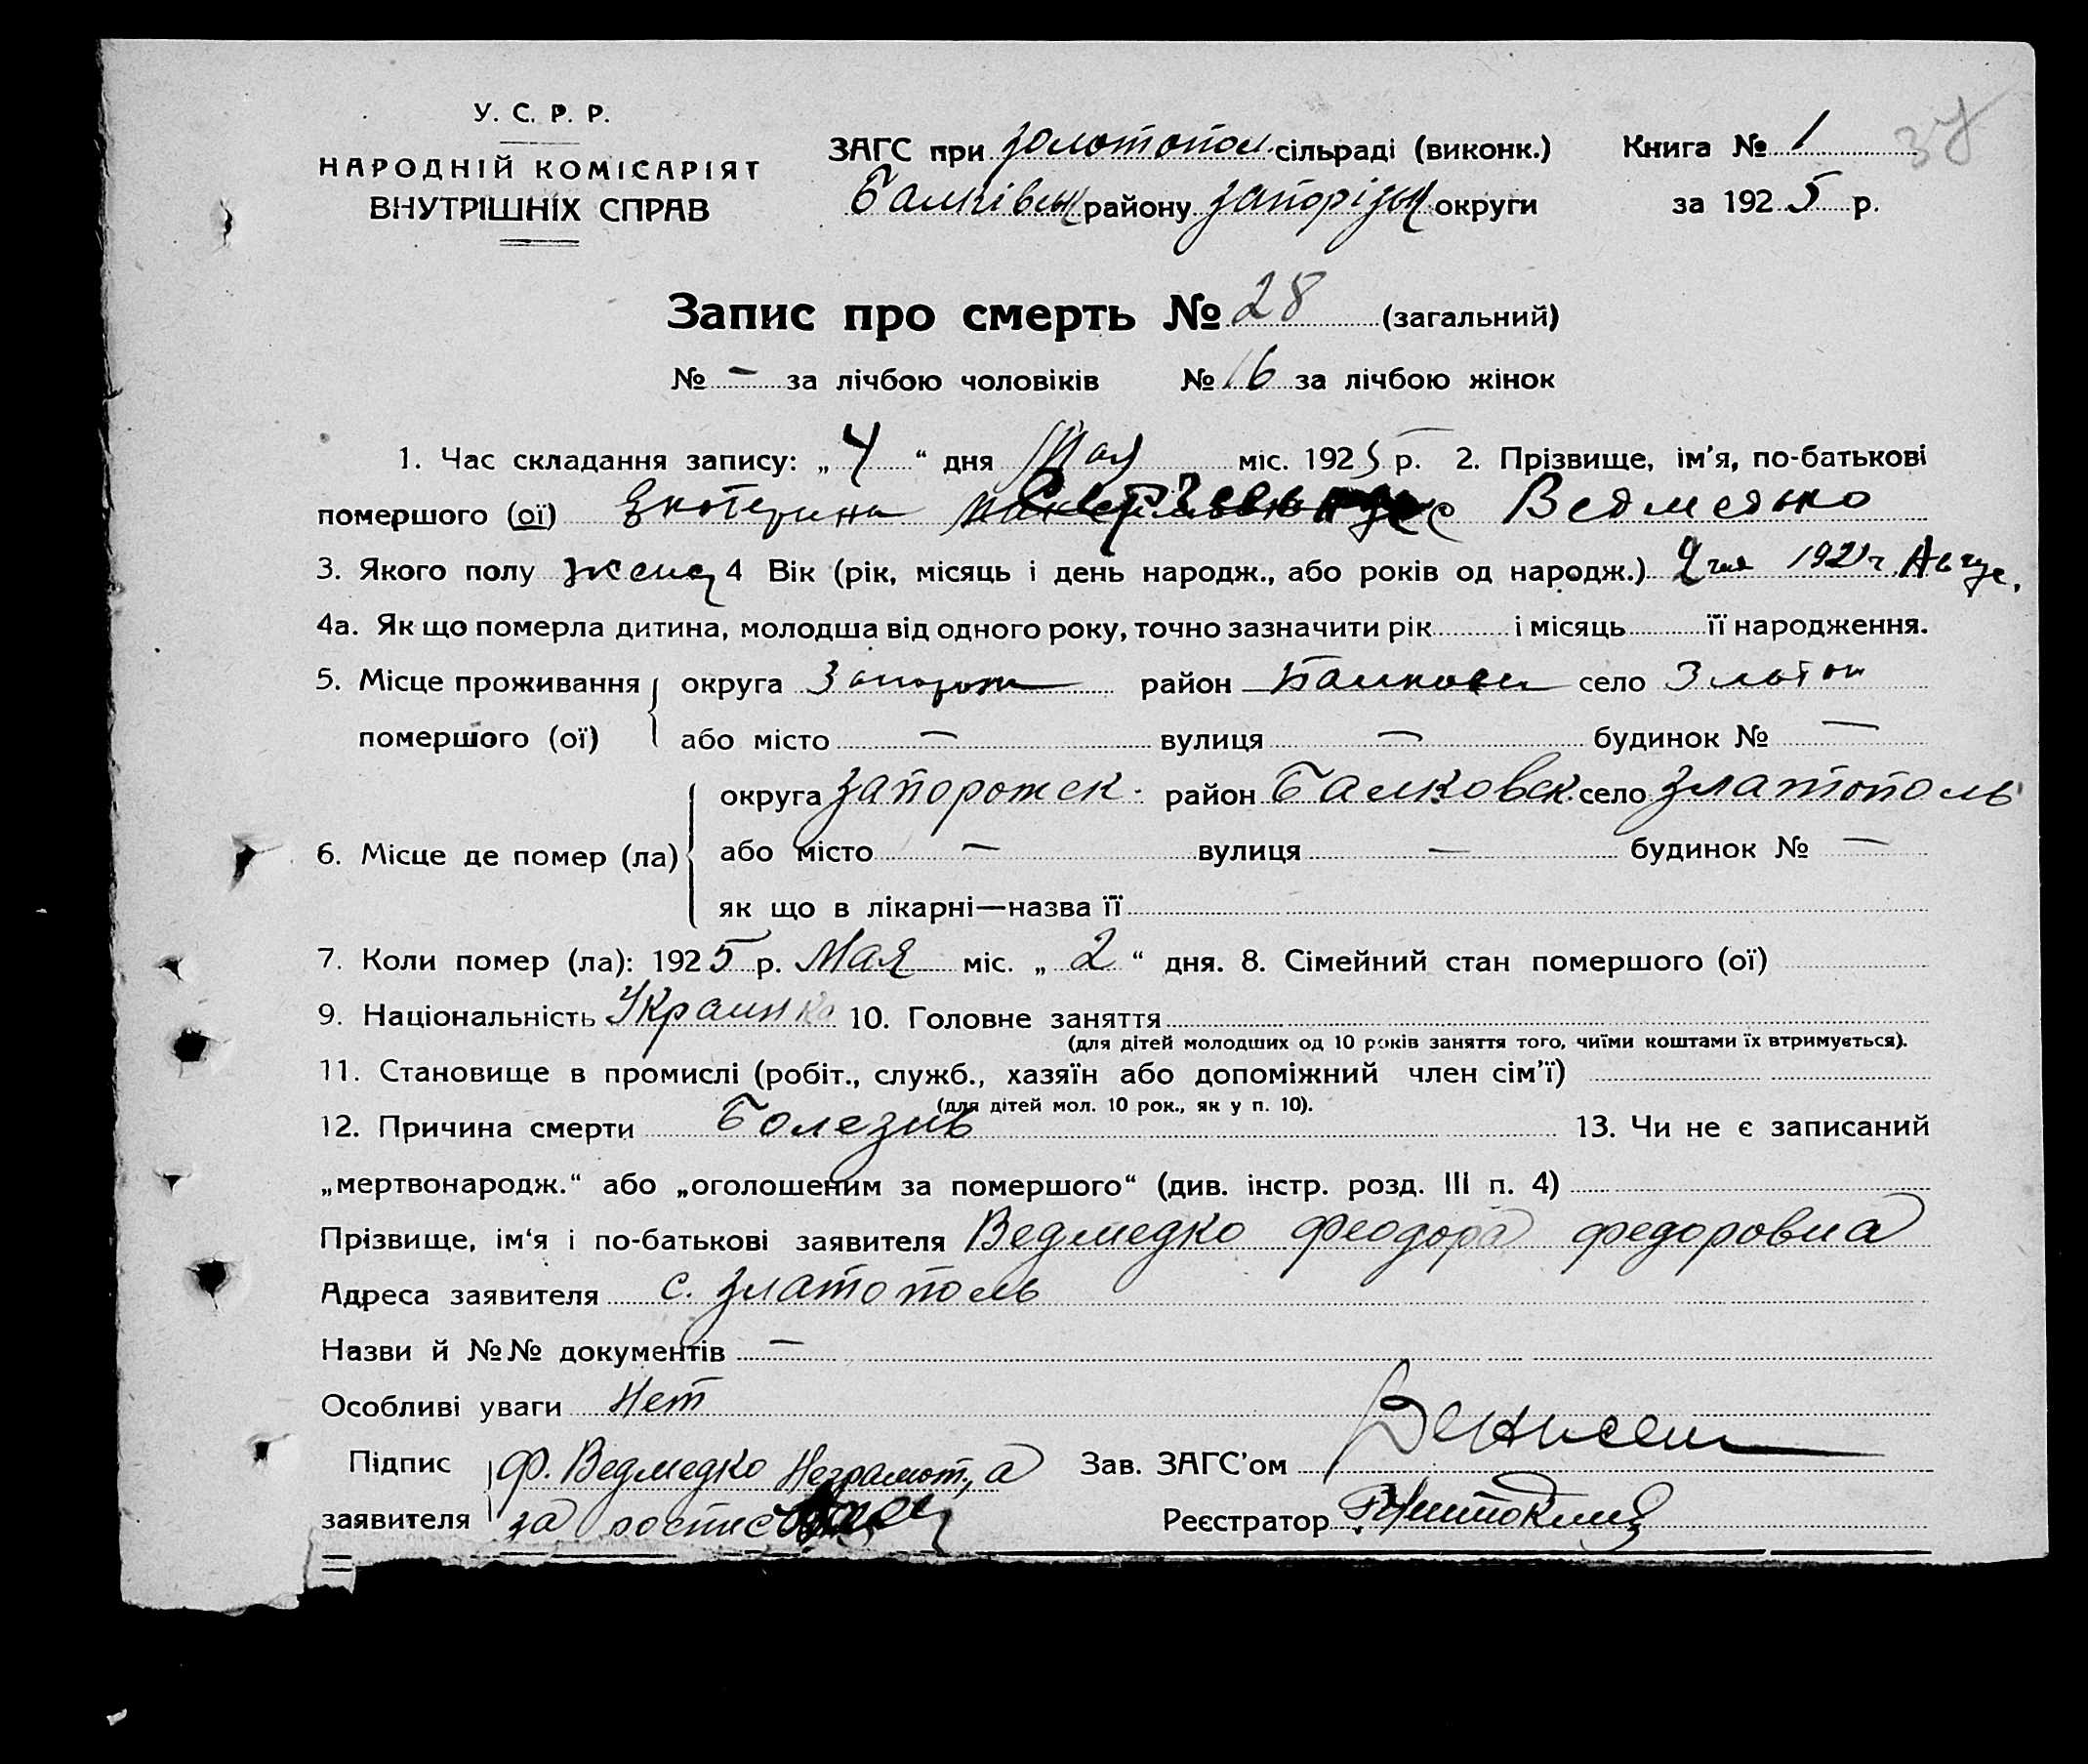 У. С. Р. Р.
НАРОДНІЙ КОМІСАРІЯТ
ВНУТРІШНІХ СПРАВ
ЗАГС при Золотопол. сільраді (виконк.)
Балківськ району Запорізьк округи
Книга № 1
за 1925 р.
37
Запис про смерть № 28 (загальний)
№ — за лічбою чоловіків № 16 за лічбою жінок
1. Час складання запису: „4“ дня Мая міс. 1925 р. 2. Прізвище, ім'я, по-батькові
помершого (ої) Екатерина Ведмедько
3. Якого полу женс 4 Вік (рік, місяць і день народж., або років од народж.) 192 г. Авгус.
4а. Як що померла дитина, молодша від одного року, точно зазначити рік і місяць її народження.
5. Місце проживання округа Запорож район Балковск село Златоп
помершого (ої) або місто — вулиця — будинок № —
округа Запорожск. район Балковск. село Златополь
6. Місце де помер (ла) або місто — вулиця — будинок № —
як що в лікарні—назва її
7. Коли помер (ла): 1925 р. Мая міс. „2“ дня. 8. Сімейний стан помершого (ої)
9. Національність Украинка 10. Головне заняття
(для дітей молодших од 10 років заняття того, чиїми коштами їх втримується).
11. Становище в промислі (робіт., служб., хазяїн або допоміжний член сім'ї)
(для дітей мол. 10 рок., як у п. 10).
12. Причина смерти Болезнь 13. Чи не є записаний
„мертвонародж.“ або „оголошеним за помершого“ (див. інстр. розд. III п. 4)
Прізвище, ім‘я і по-батькові заявителя Ведмедко Феодора Федоровна
Адреса заявителя с. Златополь
Назви й №№ документів —
Особливі уваги Нет
Підпис Ф. Ведмедко Неграмот., а Зав. ЗАГС'ом
заявителя за Реєстратор